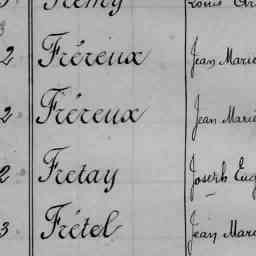 Frémy Louis
3
2 Fréreux Jean Marie
2 Fréreux Jean Marie
2 Fretay Joseph Eug
3 Frétel Jean Marie